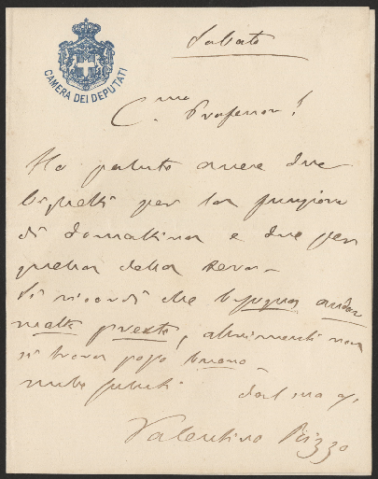 CAMERA DEI DEPUTATI
Sabato
C.mo Professor!
Ho potuto avere due
biglietti per la funzione
di domattina e due per
quella della sera -
Si ricordi che bisogna andar
molto presto, altrimenti non
si trova posto buono -
mille saluti dal suo
Valentino Rizzo